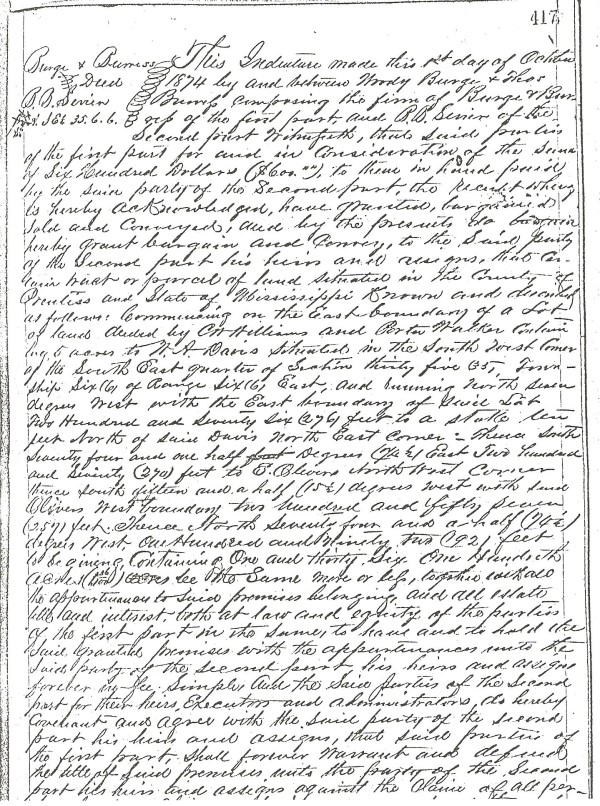 417
Burge & Burress This Indenture made this 1st day of October
Deed 1874 by and between Woody Burge & Thos
B.B. Sevier Burress composing the firm of Burge & Bur-
S.E¼ 35. 6. 6. ress of the first part and B.B. Sevier of the
Second part Witnesseth, that said parties
of the first part for and in consideration of the Sum
of Six Hundred Dollars, ($600.00), to them in hand paid
by the said party of the Second part, the receipt whereof
is hereby acknowledged, have granted, bargained
Sold and Conveyed, and by the presents do bargain
hereby grant bargain and Convey, to the said party
of the Second part his heirs and assigns, that cer-
tain tract or parcel of land situated in the County of
Prentiss and State of Mississippi Known and described
as follows: Commencing on the East boundary of a Lot
of land deeded by Williams and Porter Walker contain
ing 6 acres to W.A. Davis situated in the South West Corner
of the South East quarter of Section thirty five (35), Town-
ship Six (6) of Range Six (6) East, and running North Seven
degrees West with the East boundary of said Lot
Two Hundred and Seventy Six (276) feet to a stake ten
feet North of said Davis North East Corner - Thence South
Seventy four and one half feet Degrees (74½) East Two Hundred
and Seventy (270) feet to E. Olivers North West Corner
thence South fifteen and a half (15½) degrees west with said
Olivers West boundary two hundred and fifty Seven
(257) feet. Thence North Seventy four and a half (74½)
degrees West, One Hundred and Ninety two (192) feet
to beginning, Containing One and thirty Six One Hundredth
acres acres be the Same more or less, together with all
the appurtenances to said premises belonging and all estate
title and interest, both at law and equity of the parties
of the first part in the same, to have and to hold the
said granted premises with the appurtenances unto the
said party of the second part, his heirs and assigns
forever in fee simple. And the said parties of the Second
part for their heirs, Executors and administrators, do hereby
Covenant and agree with the said party of the second
part his heirs and assigns, that said parties of
the first part shall forever Warrant and defend
the title of said premises unto the party of the Second
part his heirs and assigns against the Claim of all per-